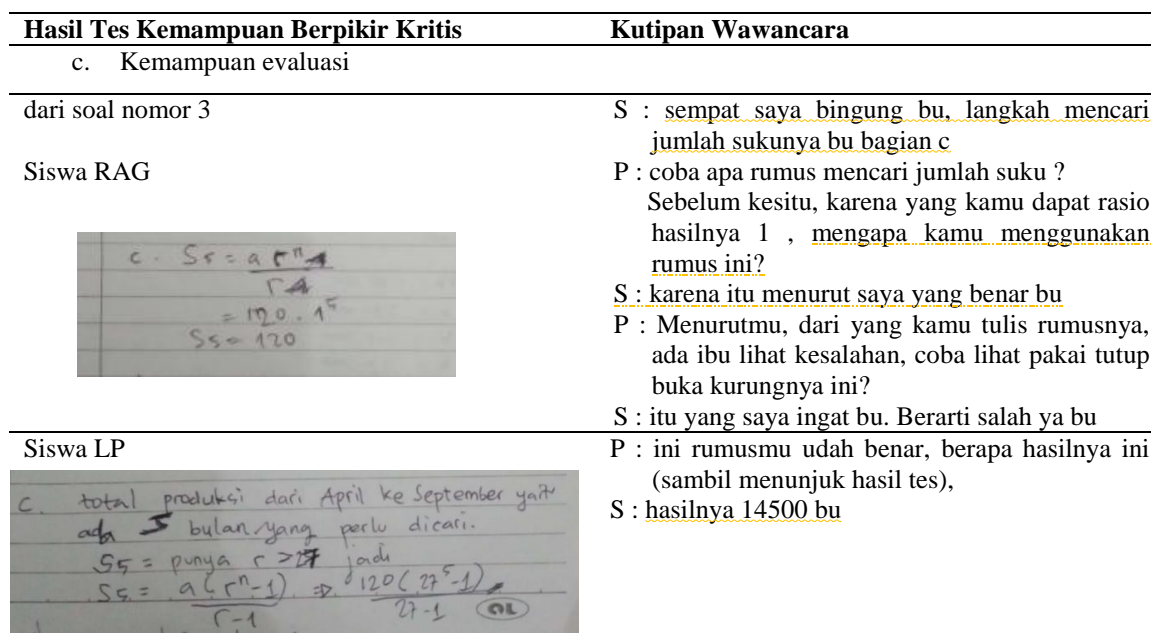 Hasil Tes Kemampuan Berpikir Kritis
Kutipan Wawancara
c. Kemampuan evaluasi
dari soal nomor 3
Siswa RAG
c. S5 = a rⁿ-1
r-1
= 120 . 1⁵
S5 = 120
S : sempat saya bingung bu, langkah mencari
jumlah sukunya bu bagian c
P : coba apa rumus mencari jumlah suku ?
Sebelum kesitu, karena yang kamu dapat rasio
hasilnya 1 , mengapa kamu menggunakan
rumus ini?
S : karena itu menurut saya yang benar bu
P : Menurutmu, dari yang kamu tulis rumusnya,
ada ibu lihat kesalahan, coba lihat pakai tutup
buka kurungnya ini?
S : itu yang saya ingat bu. Berarti salah ya bu
Siswa LP
C. total produksi dari April ke September yait
ada 5 bulan yang perlu dicari.
S5 = punya r > 27 jadi
S5 = a(rⁿ-1) ⇒ 120(27⁵-1)
r-1 27-1
P : ini rumusmu udah benar, berapa hasilnya ini
(sambil menunjuk hasil tes),
S : hasilnya 14500 bu